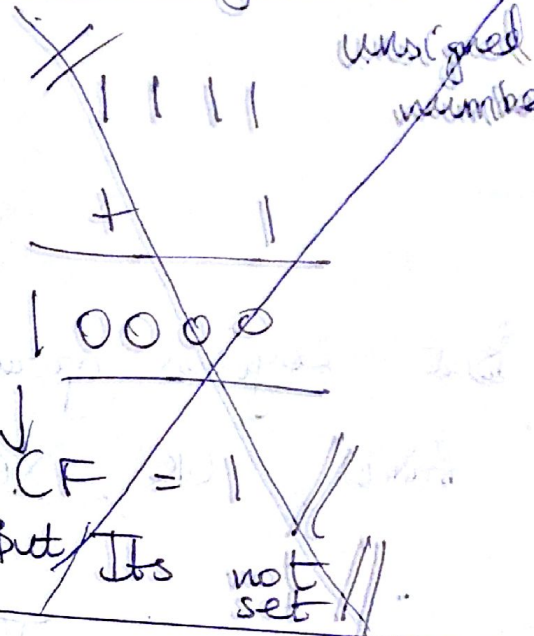 unsigned
numbe
1 1 1 1
+ 1
1 0 0 0 0
↓
CF = 1 //
but Its not
set //